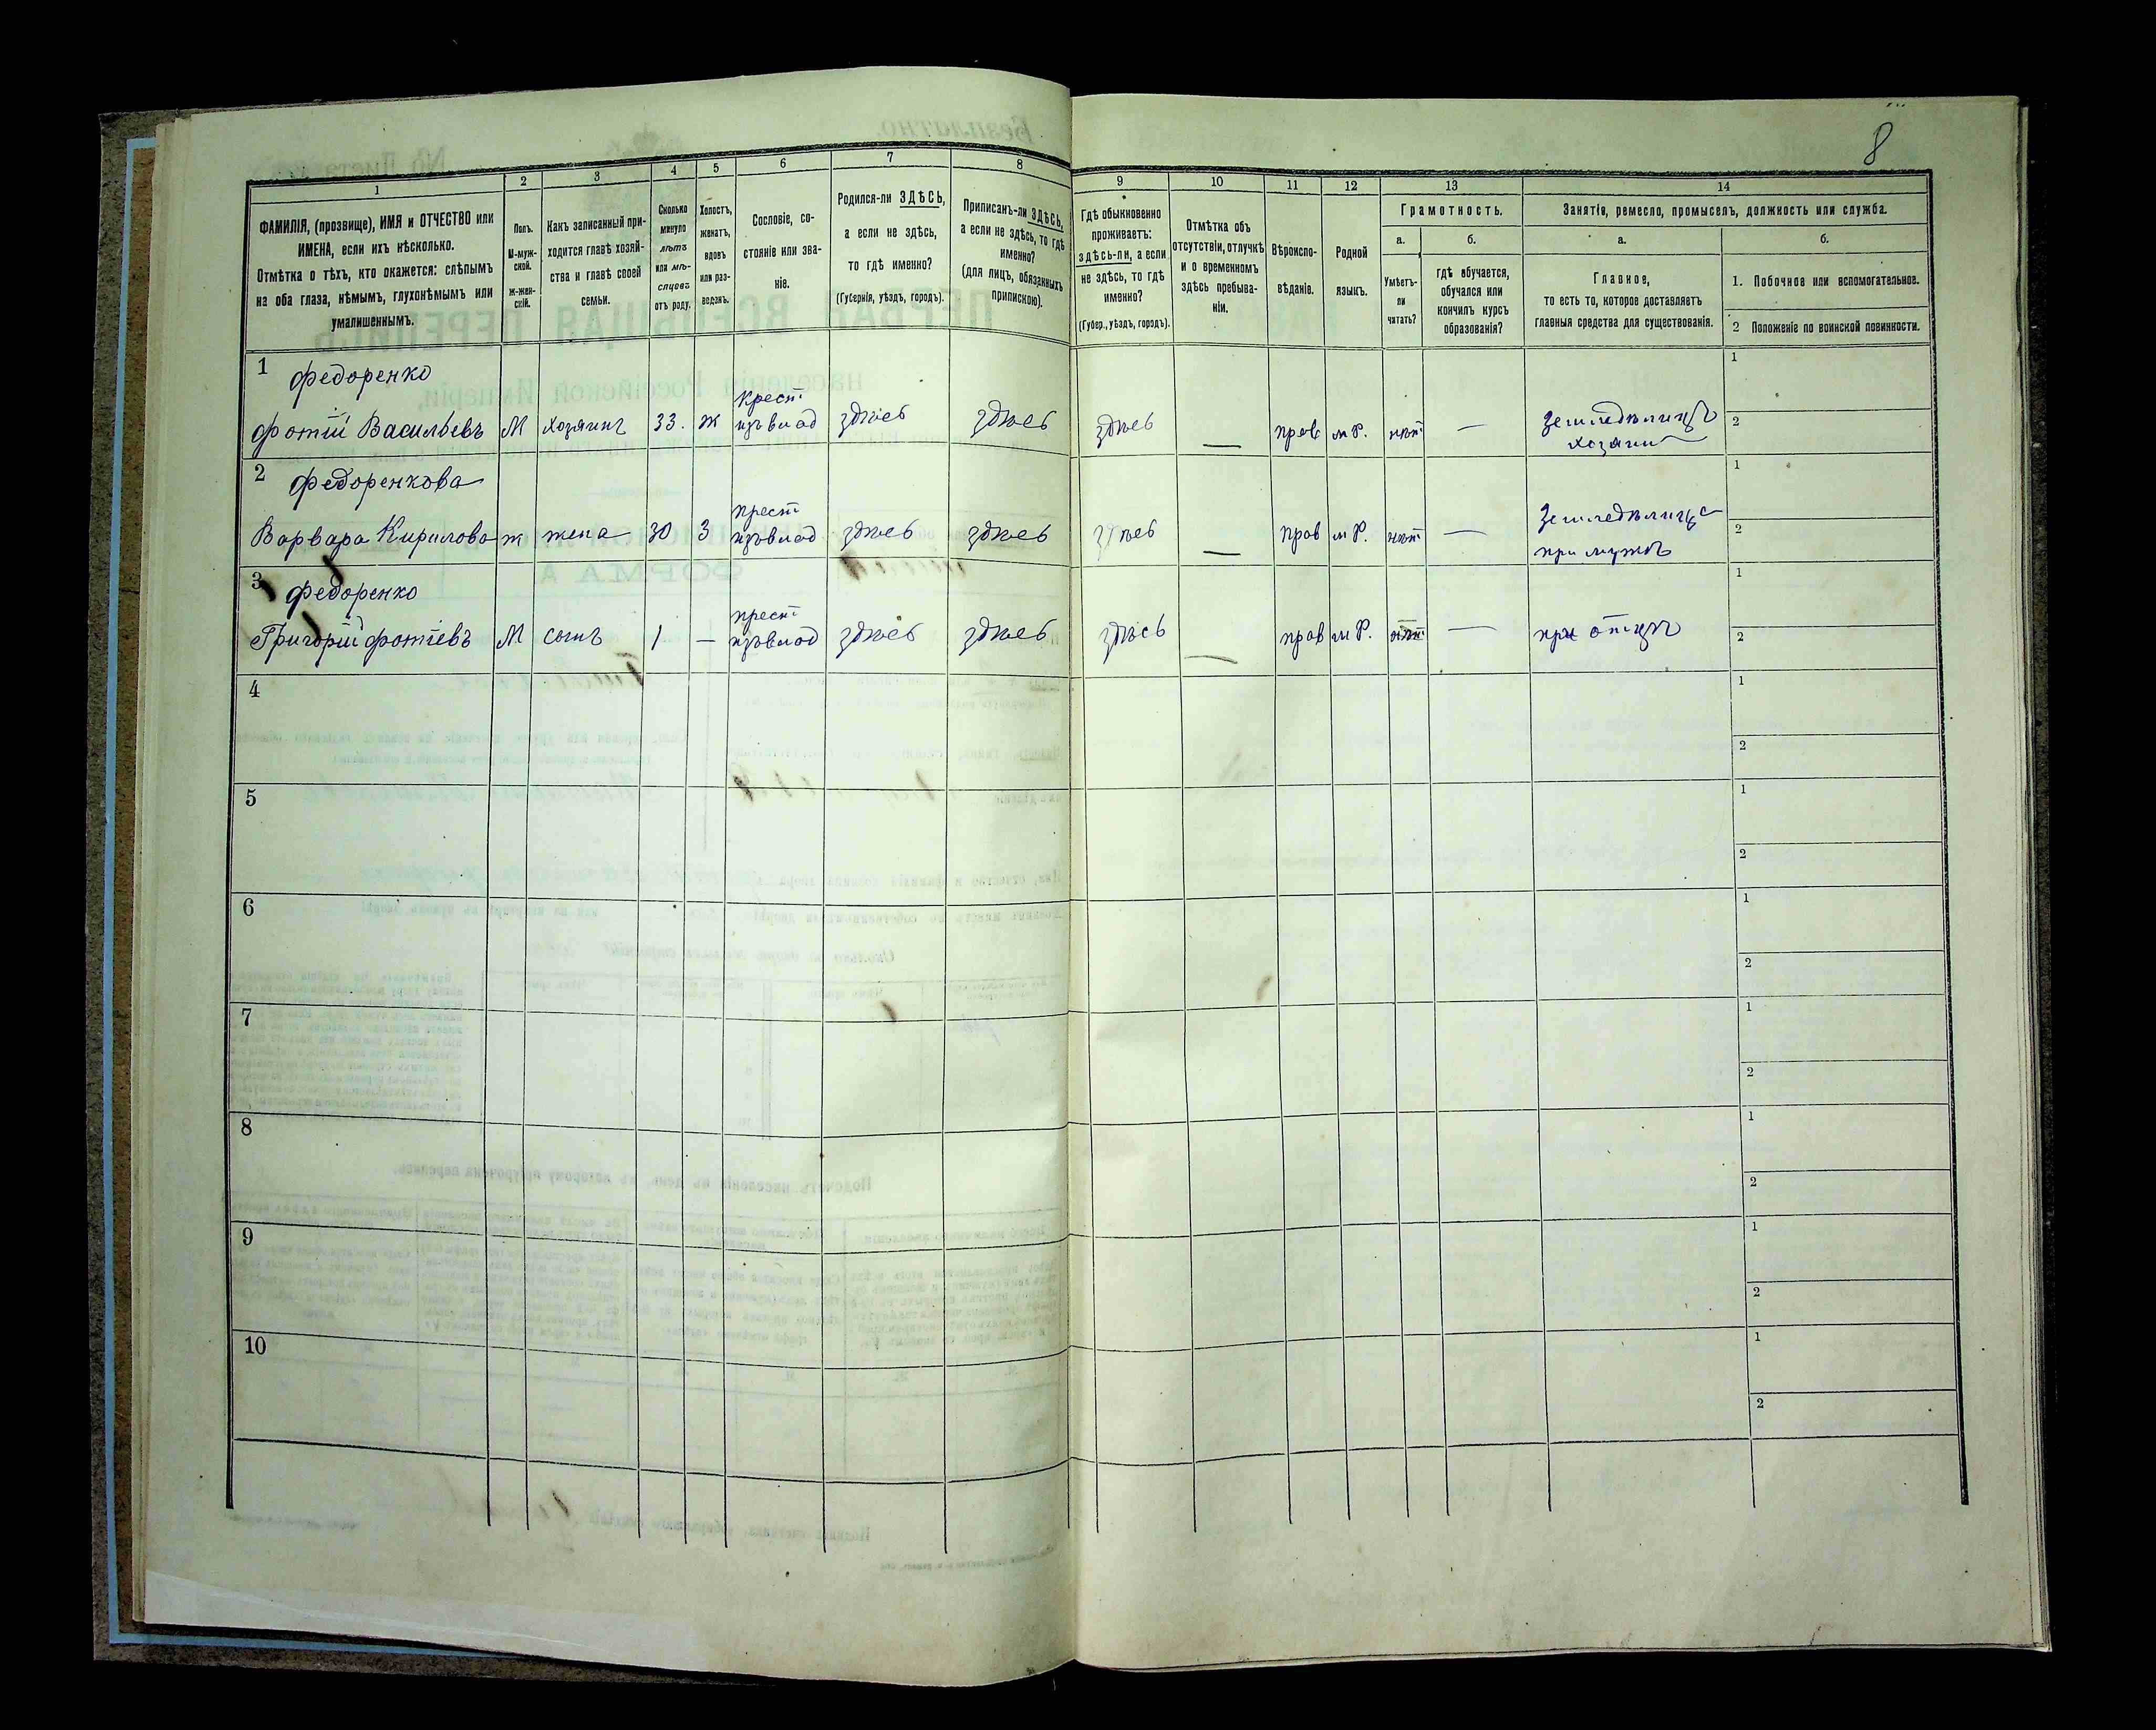 8
1
2
3
4
5
6
7
8
9
10
11
12
13
14
ФАМИЛІЯ, (прозвище), ИМЯ и ОТЧЕСТВО или
ИМЕНА, если ихъ нѣсколько.
Отмѣтка о тѣхъ, кто окажется: слѣпымъ
на оба глаза, нѣмымъ, глухонѣмымъ или
умалишеннымъ.
Полъ.
М-муж-
ской.
Ж-жен-
скій.
Какъ записанный при-
ходится главѣ хозяй-
ства и главѣ своей
семьи.
Сколько
минуло
лѣтъ
или мѣ-
сяцевъ
отъ роду.
Холостъ,
женатъ,
вдовъ
или раз-
веденъ.
Сословіе, со-
стояніе или зва-
ніе.
Родился-ли ЗДѢСЬ,
а если не здѣсь,
то гдѣ именно?
(Губернія, уѣздъ, городъ).
Приписанъ-ли ЗДѢСЬ,
а если не здѣсь, то гдѣ
именно?
(для лицъ, обязанныхъ
припискою).
Гдѣ обыкновенно
проживаетъ:
здѣсь-ли, а если
не здѣсь, то гдѣ
именно?
(Губер., уѣздъ, городъ).
Отмѣтка объ
отсутствіи, отлучкѣ
и о временномъ
здѣсь пребыва-
ніи.
Вѣроиспо-
вѣданіе.
Родной
языкъ.
Грамотность.
а.
б.
Умѣетъ-
ли
читать?
гдѣ обучается,
обучался или
кончилъ курсъ
образованія?
Занятіе, ремесло, промыселъ, должность или служба.
а.
б.
Главное,
то есть то, которое доставляетъ
главныя средства для существованія.
1. Побочное или вспомогательное.
2 Положеніе по воинской повинности.
1 Федоренко
Крест
Фотій Васильевъ М хозяинъ 33. ж изъ влад здѣсь здѣсь здѣсь — прав м Р. нѣт — Земледѣлицъ
хозяин
1
2
2 Федоренкова
крест
Варвара Кирилова ж жена 30 З изъ влад здѣсь здѣсь здѣсь — прав м Р. нѣт — Земледѣлица
при мужѣ
1
2
3 Федоренко
крест
Григорій Фотіевъ М сынъ 1 — изъ влад здѣсь здѣсь здѣсь — прав м Р. нѣт — при отцѣ
1
2
4
1
2
5
1
2
6
1
2
7
1
2
8
1
2
9
1
2
10
1
2